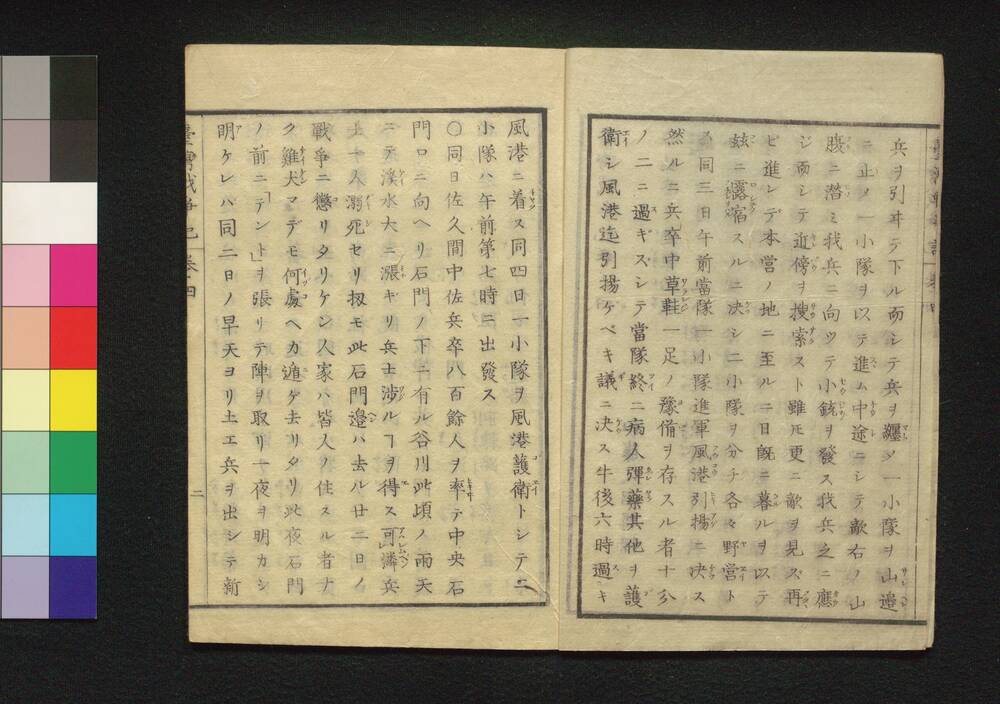 兵ヲ引ヰテ下ル而シテ兵ヲ纏メ一小隊ヲ山邉
ニ止メ一小隊ヲ以テ進ム中途ニシテ敵右ノ山
腹ニ潜ミ我兵ニ向ツテ小銃ヲ發ス我兵之ニ應
ジ而シテ近傍ヲ搜索スト雖𪜈更ニ敵ヲ見ズ再
ビ進ンデ本営ノ地ニ至ルニ日既ニ暮ルヲ以テ
茲ニ露宿スルニ決シ二小隊ヲ分チ各々野営ト
ス同三日午前當隊一小隊進軍風港引揚ニ決ス
然ルニ兵卒中草鞋一足ノ豫備ヲ存スル者十分
ノ二ニ過ギズシテ當隊終ニ病人彈藥其他ヲ護
衛シ風港迄引揚ケベキ議ニ決ス午後六時過キ
風港ニ着ス同四日一小隊ヲ風港護衛トシテ二
小隊ハ午前第七時ニ出發ス
〇同日佐久間中佐兵卒八百餘人ヲ率テ中央石
門口ニ向ヘリ石門ノ下ニ有ル谷川此頃ノ雨天
ニテ溪水大ニ漲ギリ兵士渉ルヿヲ得ス可憐兵
士一人溺死セリ扨モ此石門邉ハ去ル廿二日ノ
戰爭ニ懲リタリケン人家ハ皆人ノ住スル者ナ
ク雞犬マデモ何處ヘカ遁ゲ去リタリ此夜石門
ノ前ニ「テント」ヲ張リテ陣ヲ取リ一夜ヲ明カシ
明ケレハ同二日ノ早天ヨリ土工兵ヲ出シテ新
卷四
二